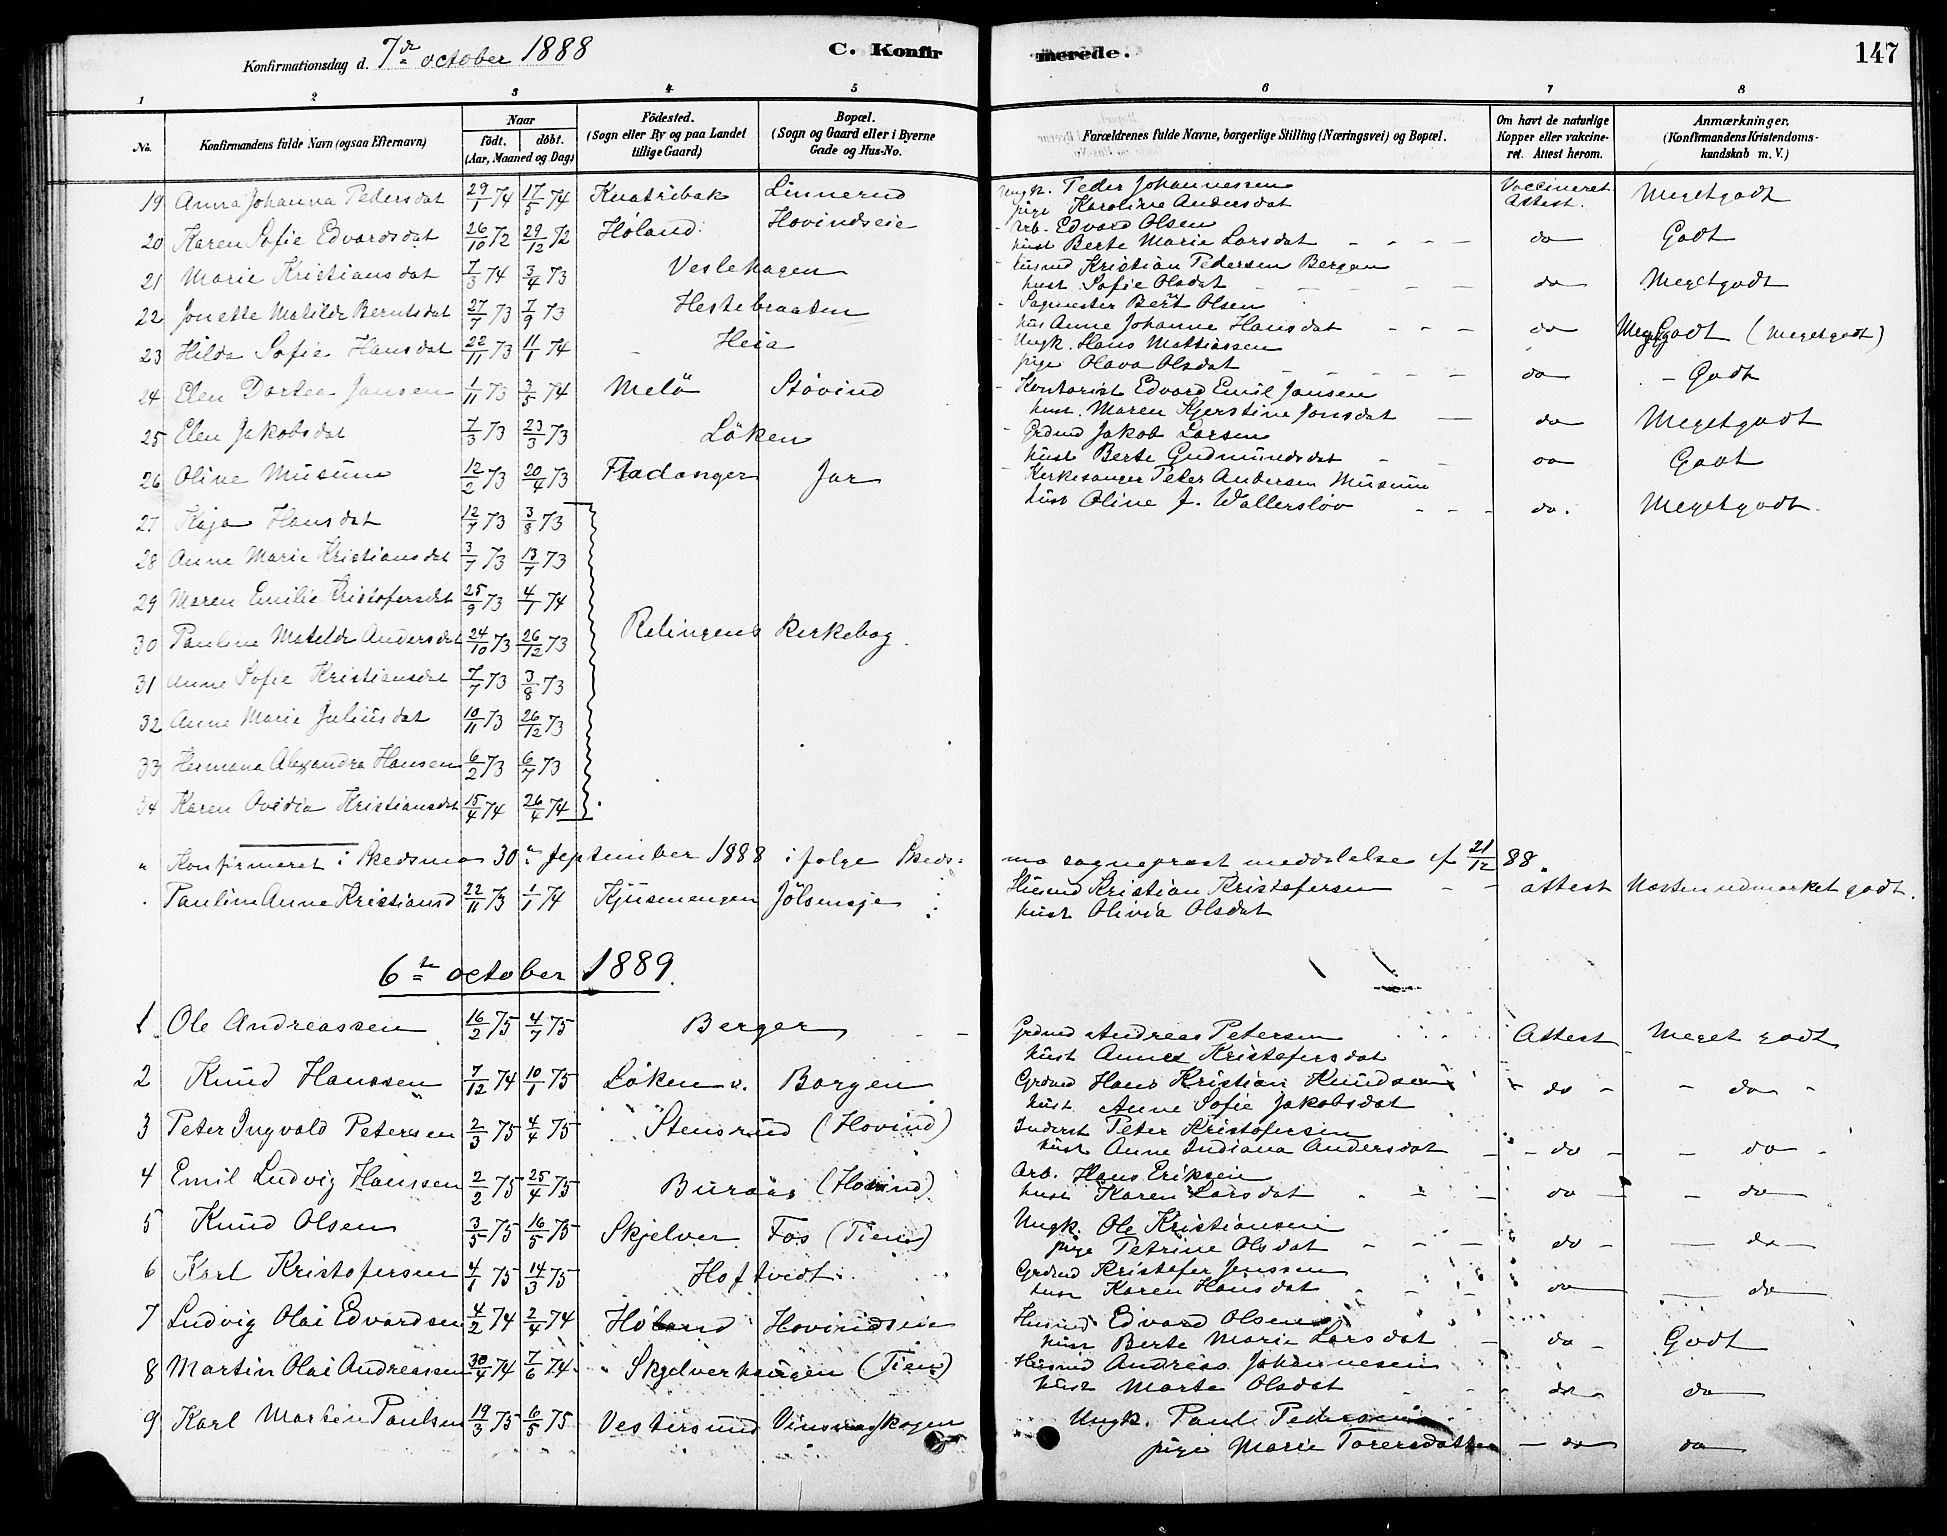 Konfirmationsdag d. 7de october 1888 C. Konfirmerede. 147
1 2 3 4 5 6 7 8
No. Konfirmandens fulde Navn (ogsaa Efternavn) Naar født. døbt. (Aar, Maaned og Dag) Fødested. (Sogn eller By og paa Landet tillige Gaard) Bopæl. (Sogn og Gaard eller i Byerne Gade og Hus-No. Forældrenes fulde Navne, borgerlige Stilling (Næringsvei) og Bopæl. Om havt de naturlige Kopper eller vakcineret. Attest herom. Anmærkninger, (Konfirmandens Kristendomskundskab m. V.)
19 Anna Johanna Pedersdat 29/1 74 17/5 74 Knatribak Linnerud Ungk. Peder Johannessen Vaccineret Megetgodt
pige Karoline Andersdat Attest.
20 Karen Sofie Edvardsdat 26/10 72 29/12 72 Høland Hovindseie Arb. Edvard Olsen
hust Berte Marie Larsdat - - - - do Godt
21 Marie Kristiansdat 7/3 74 3/4 73 Veslehagen husmd Kristian Pedersen Bergan
hust. Sofie Olsdat - - - - do Megetgodt
22 Jonette Matilde Berntsdat 27/7 73 7/9 73 Hestebraaten Sagmester Bert Olsen
hus Anne Johanne Hansdat - - - do Meget Godt (Megetgodt)
23 Hilda Sofie Hansdat 22/11 73 11/1 74 - Heia Ungk. Hans Mattiassen
pige Olava Olsdat - - - - do - Godt
24 Elen Dortea Jansen 1/11 73 3/5 74 Melö Stövind Kontorist Edvard Emil Jansen
hust. Maren Kjerstine Jonsdat - do Megetgodt
25 Elen Jakobsdat 7/3 73 23/3 73 Löken Grdmd Jakob Larsen
hust Berte Gudmundsdat - - do Godt
26 Oline Musum 12/2 73 20/4 73 Fladanger Jar Kirkesanger Peter Andersen Musum
hust Oline J. Wallersløv - - - do. Megetgodt.
27 Kaja Hansdat 12/7 73 3/8 73
28 Anne Marie Kristiansdat 3/7 73 13/7 73
29 Maren Emilie Kristofersdat 25/9 73 4/1 74
30 Pauline Matilde Andersdat 24/10 73 26/12 73 Relingens Kerkebog.
31 Anne Sofie Kristiansdat 7/7 73 3/8 73
32 Anne Marie Juliusdat 10/11 73 26/12 73
33 Hermana Alexandra Hansen 6/2 73 6/7 73
34 Karen Ovidia Kristiansdat 15/4 74 26/4 74
" Konfirmeret i Skedsmo 30te September 1888 i følge Skedsmo sogneprest meddelelse af 21/12 88.
Pauline Anne Kristiansd 22/11 73 1/1 74 Kjusmengen Jölsensje Husmd Kristian Kristofersen - - attest Næsten udmærket godt.
hust Olivia Olsdat
6te october 1889.
1 Ole Andreassen 16/2 75 4/7 75 Berger - - Grdmd Andreas Petersen Attest Meget godt
hust Anne Kristofersdat
2 Knud Hanssen 7/12 74 10/1 75 Löken v. Borgen Grdmd Hans Kristian Knudsen - do - - do -
hust. Anne Sofie Jakobsdat
3 Peter Ingvald Petersen 2/3 75 4/4 75 Stensrud (Hovind) Inderst Peter Kristofersen
hust Anne Indiana Andersdat - - do - - do -
4 Emil Ludvig Hanssen 2/2 75 25/4 75 Buraas (Hovind) Arb. Hans Eriksen
hust Karen Larsdat - - - do - - do
5 Knud Olsen 3/5 75 16/5 75 Skjelver Fos (Tiens) Ungk. Ole Kristiansen
pige Petrine Olsdat - - - do - - do
6 Karl Kristofersen 4/1 75 14/3 75 Hoftvedt Grdmd Kristofer Jenssen
hust Karen Hansdat - - - do - do
7 Ludvig Olai Edvardsen 4/2 74 2/4 74 Höland Hovindseie Husmd Edvard Olsen
hust Berte Marie Larsdat - do - Godt
8 Martin Olai Andreassen 30/4 74 7/6 74 Skjelverhaugen (Tiens) Husmd Andreas Johannesen
hust Marte Olsdat - - do - do
9 Karl Martin Paulsen 19/3 75 6/5 75 Vestersund Ungk. Paul Pedersen
pige Marie Torersdatter - do do